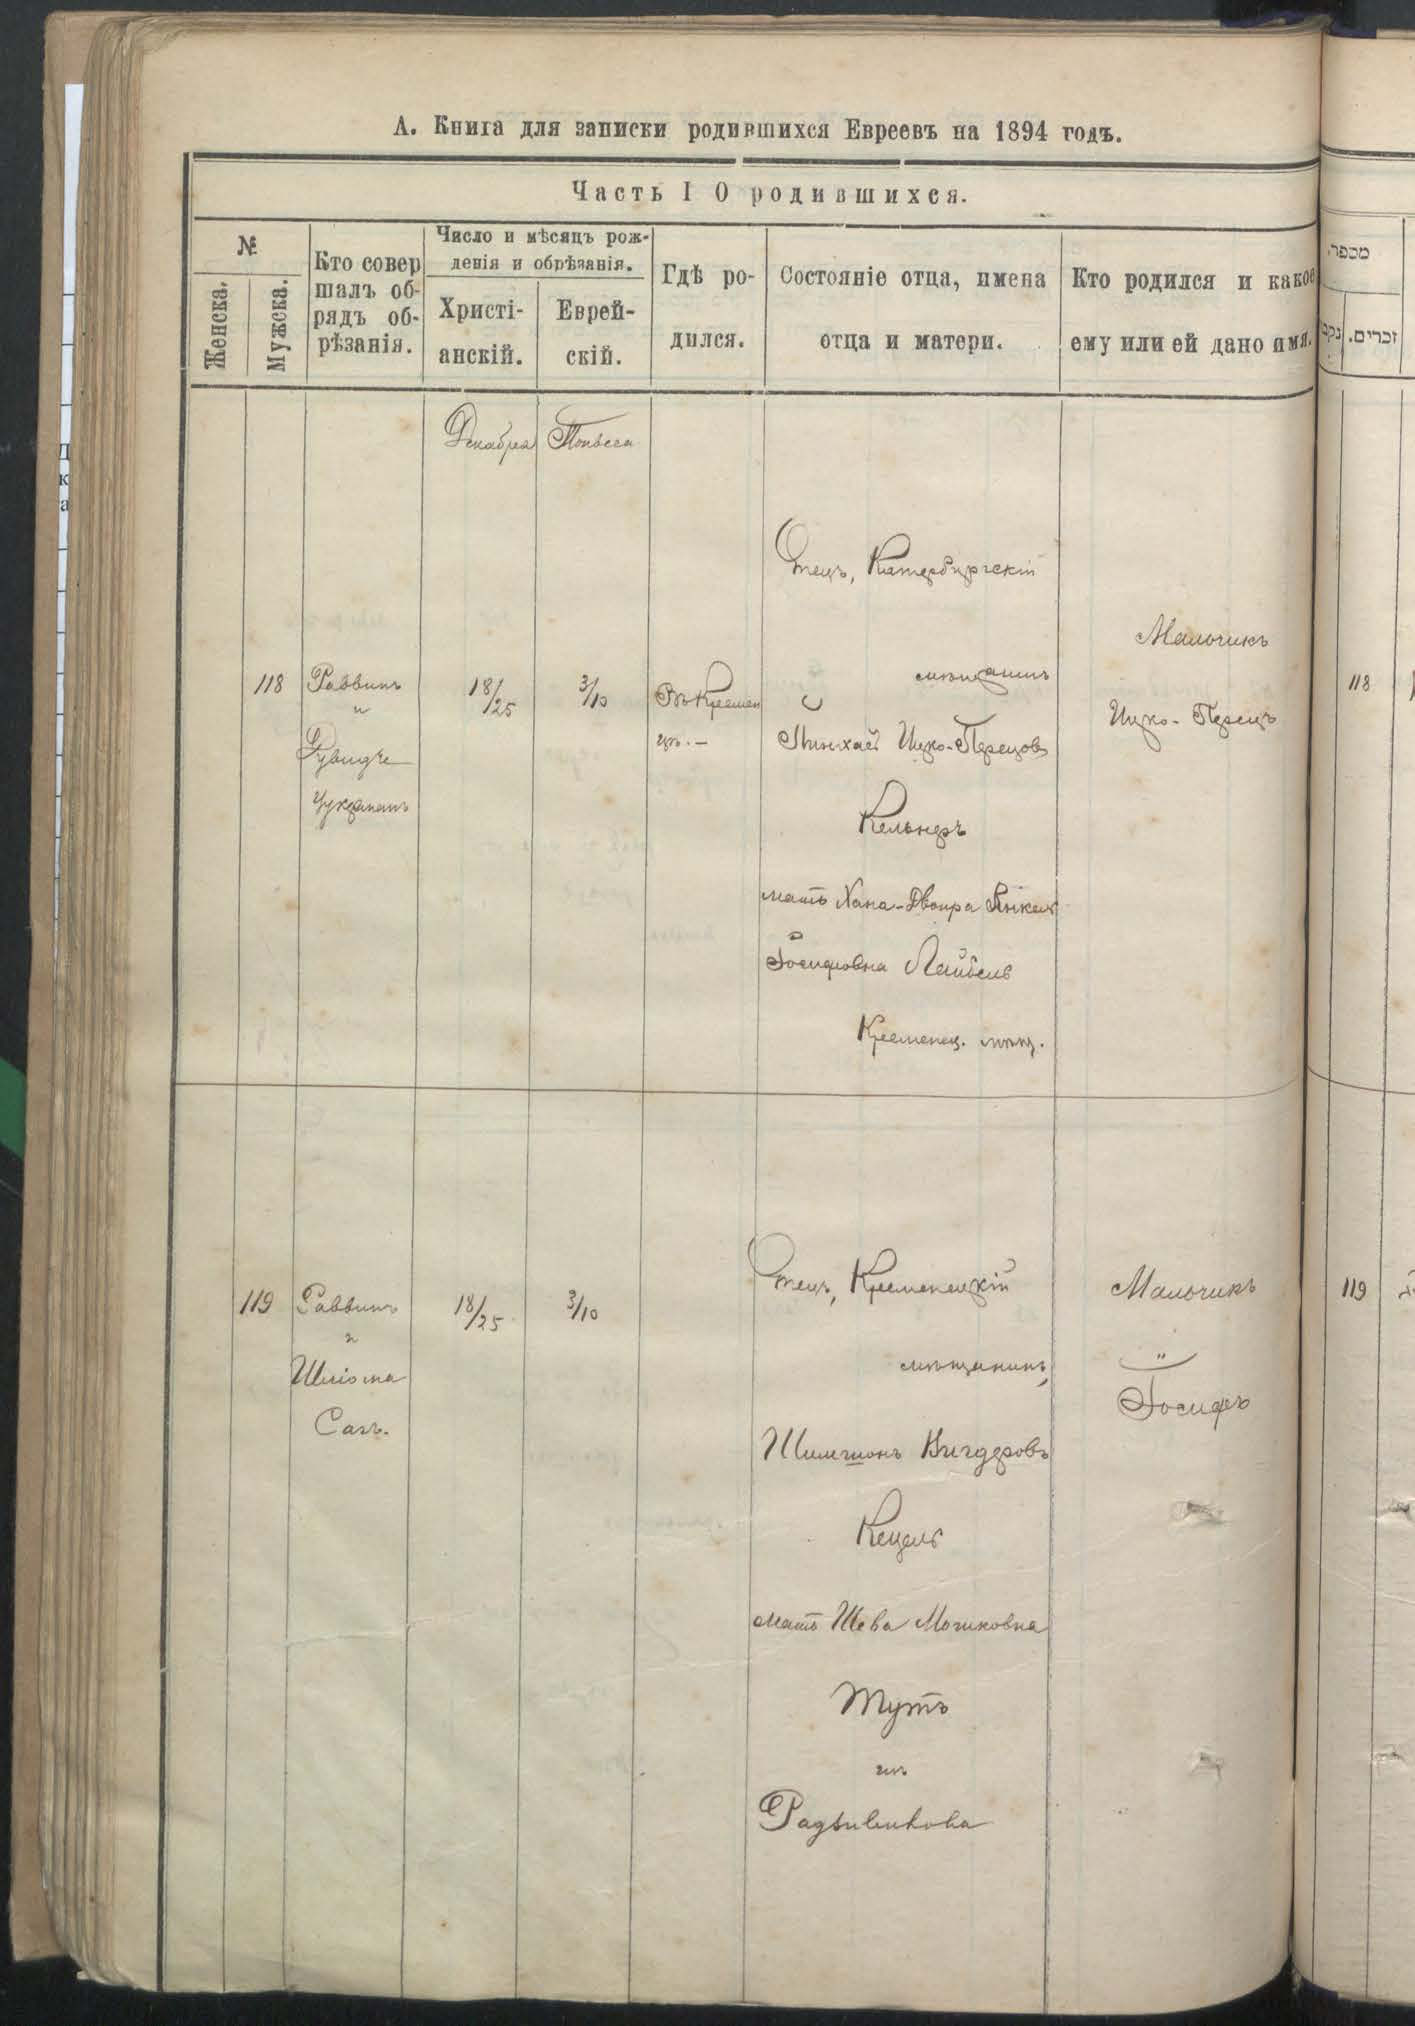 А. Книга для записки родившихся Евреевъ на 1894 годъ.
Часть I О родившихся.
№
Женска.
Мужска.
Кто совер
шалъ об-
рядъ об-
рѣзанія.
Число и мѣсяцъ рож-
денія и обрѣзанія.
Христі-
анскій.
Еврей-
скій.
Гдѣ ро-
дился.
Состояніе отца, имена
отца и матери.
Кто родился и какое
ему или ей дано имя.
מספר.
נקב
זכרים.
Декабря
118
Раввинъ
и
18/25
3/10
Въ Кремен
цѣ.-
Отецъ, Катербургскій
мѣщанинъ
Пинхасъ Ицко-Перецовъ
Кельнеръ
мать Хана-Двойра Янкель
Іосифовна
Кременец. мѣщ.
Мальчикъ
Ицко-Перецъ
118
119
Раввинъ
и
18/25
3/10
Отецъ, Кременецкій
мѣщанинъ,
Шимшонъ Вигдоровъ
Кецель
мать Шева
Мальчикъ
Іосифъ
119